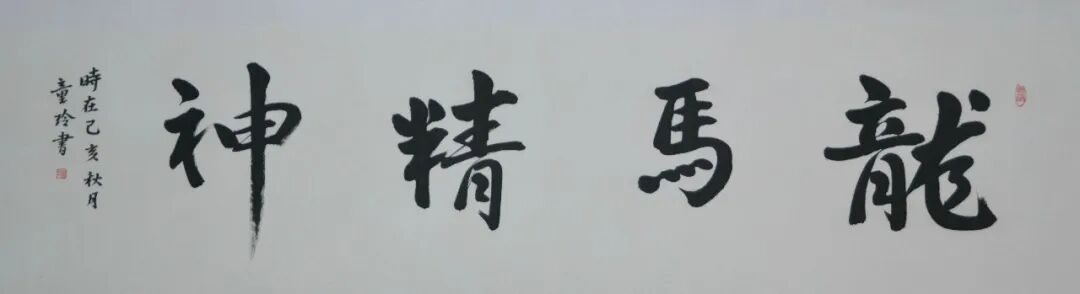 龍馬精神
時在己亥秋月
童玲書